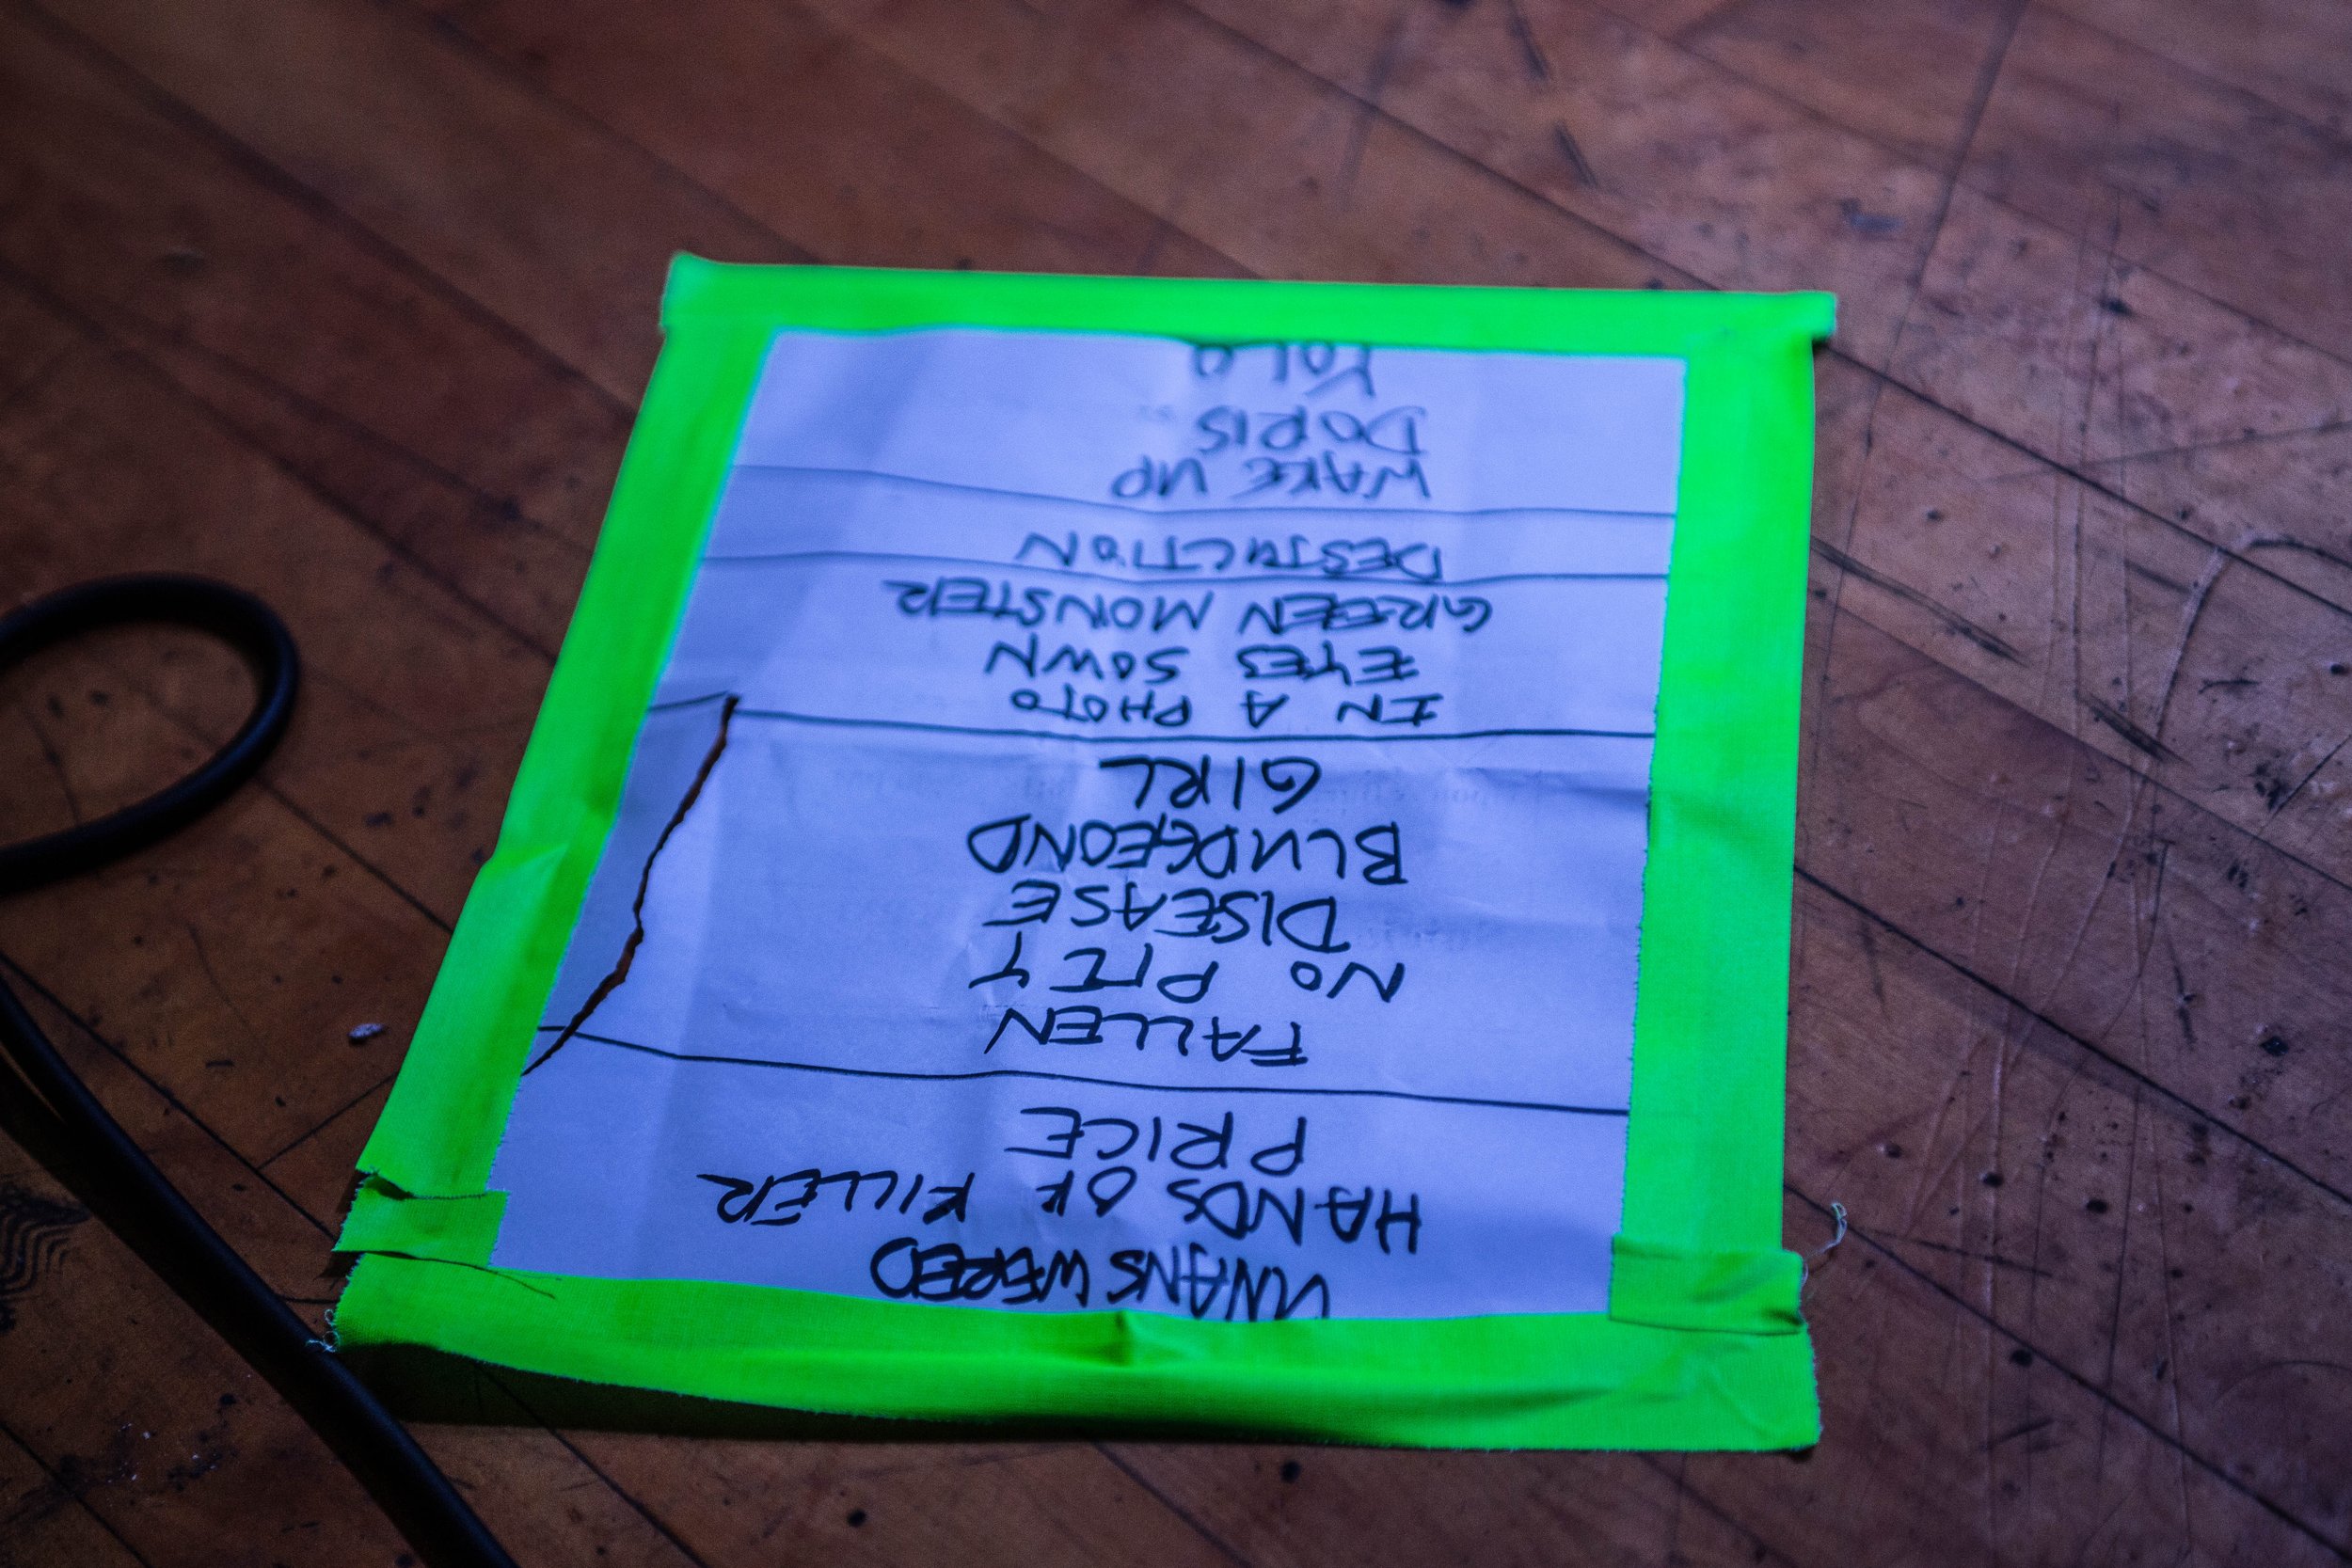 UNANSWERED
HANDS OF KILLER
PRICE
FALLEN
NO PITY
DISEASE
BLUDGEOND
GIRL
IN A PHOTO
EYES SOWN
GREEN MONSTER
DESTUCTION
WAKE UP
DORIS